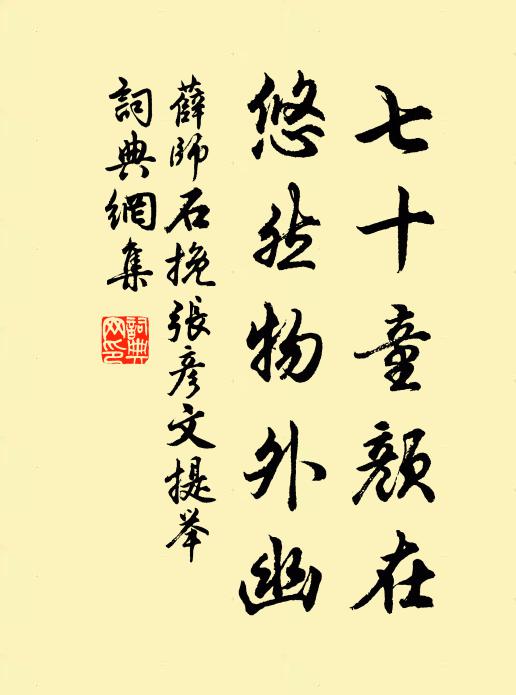 七十童颜在
悠然物外幽
薛师石挽張彦文提举
詞典網集
詞典网印